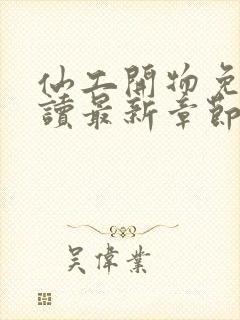 仙工開物免
讀最新章節
吳偉業